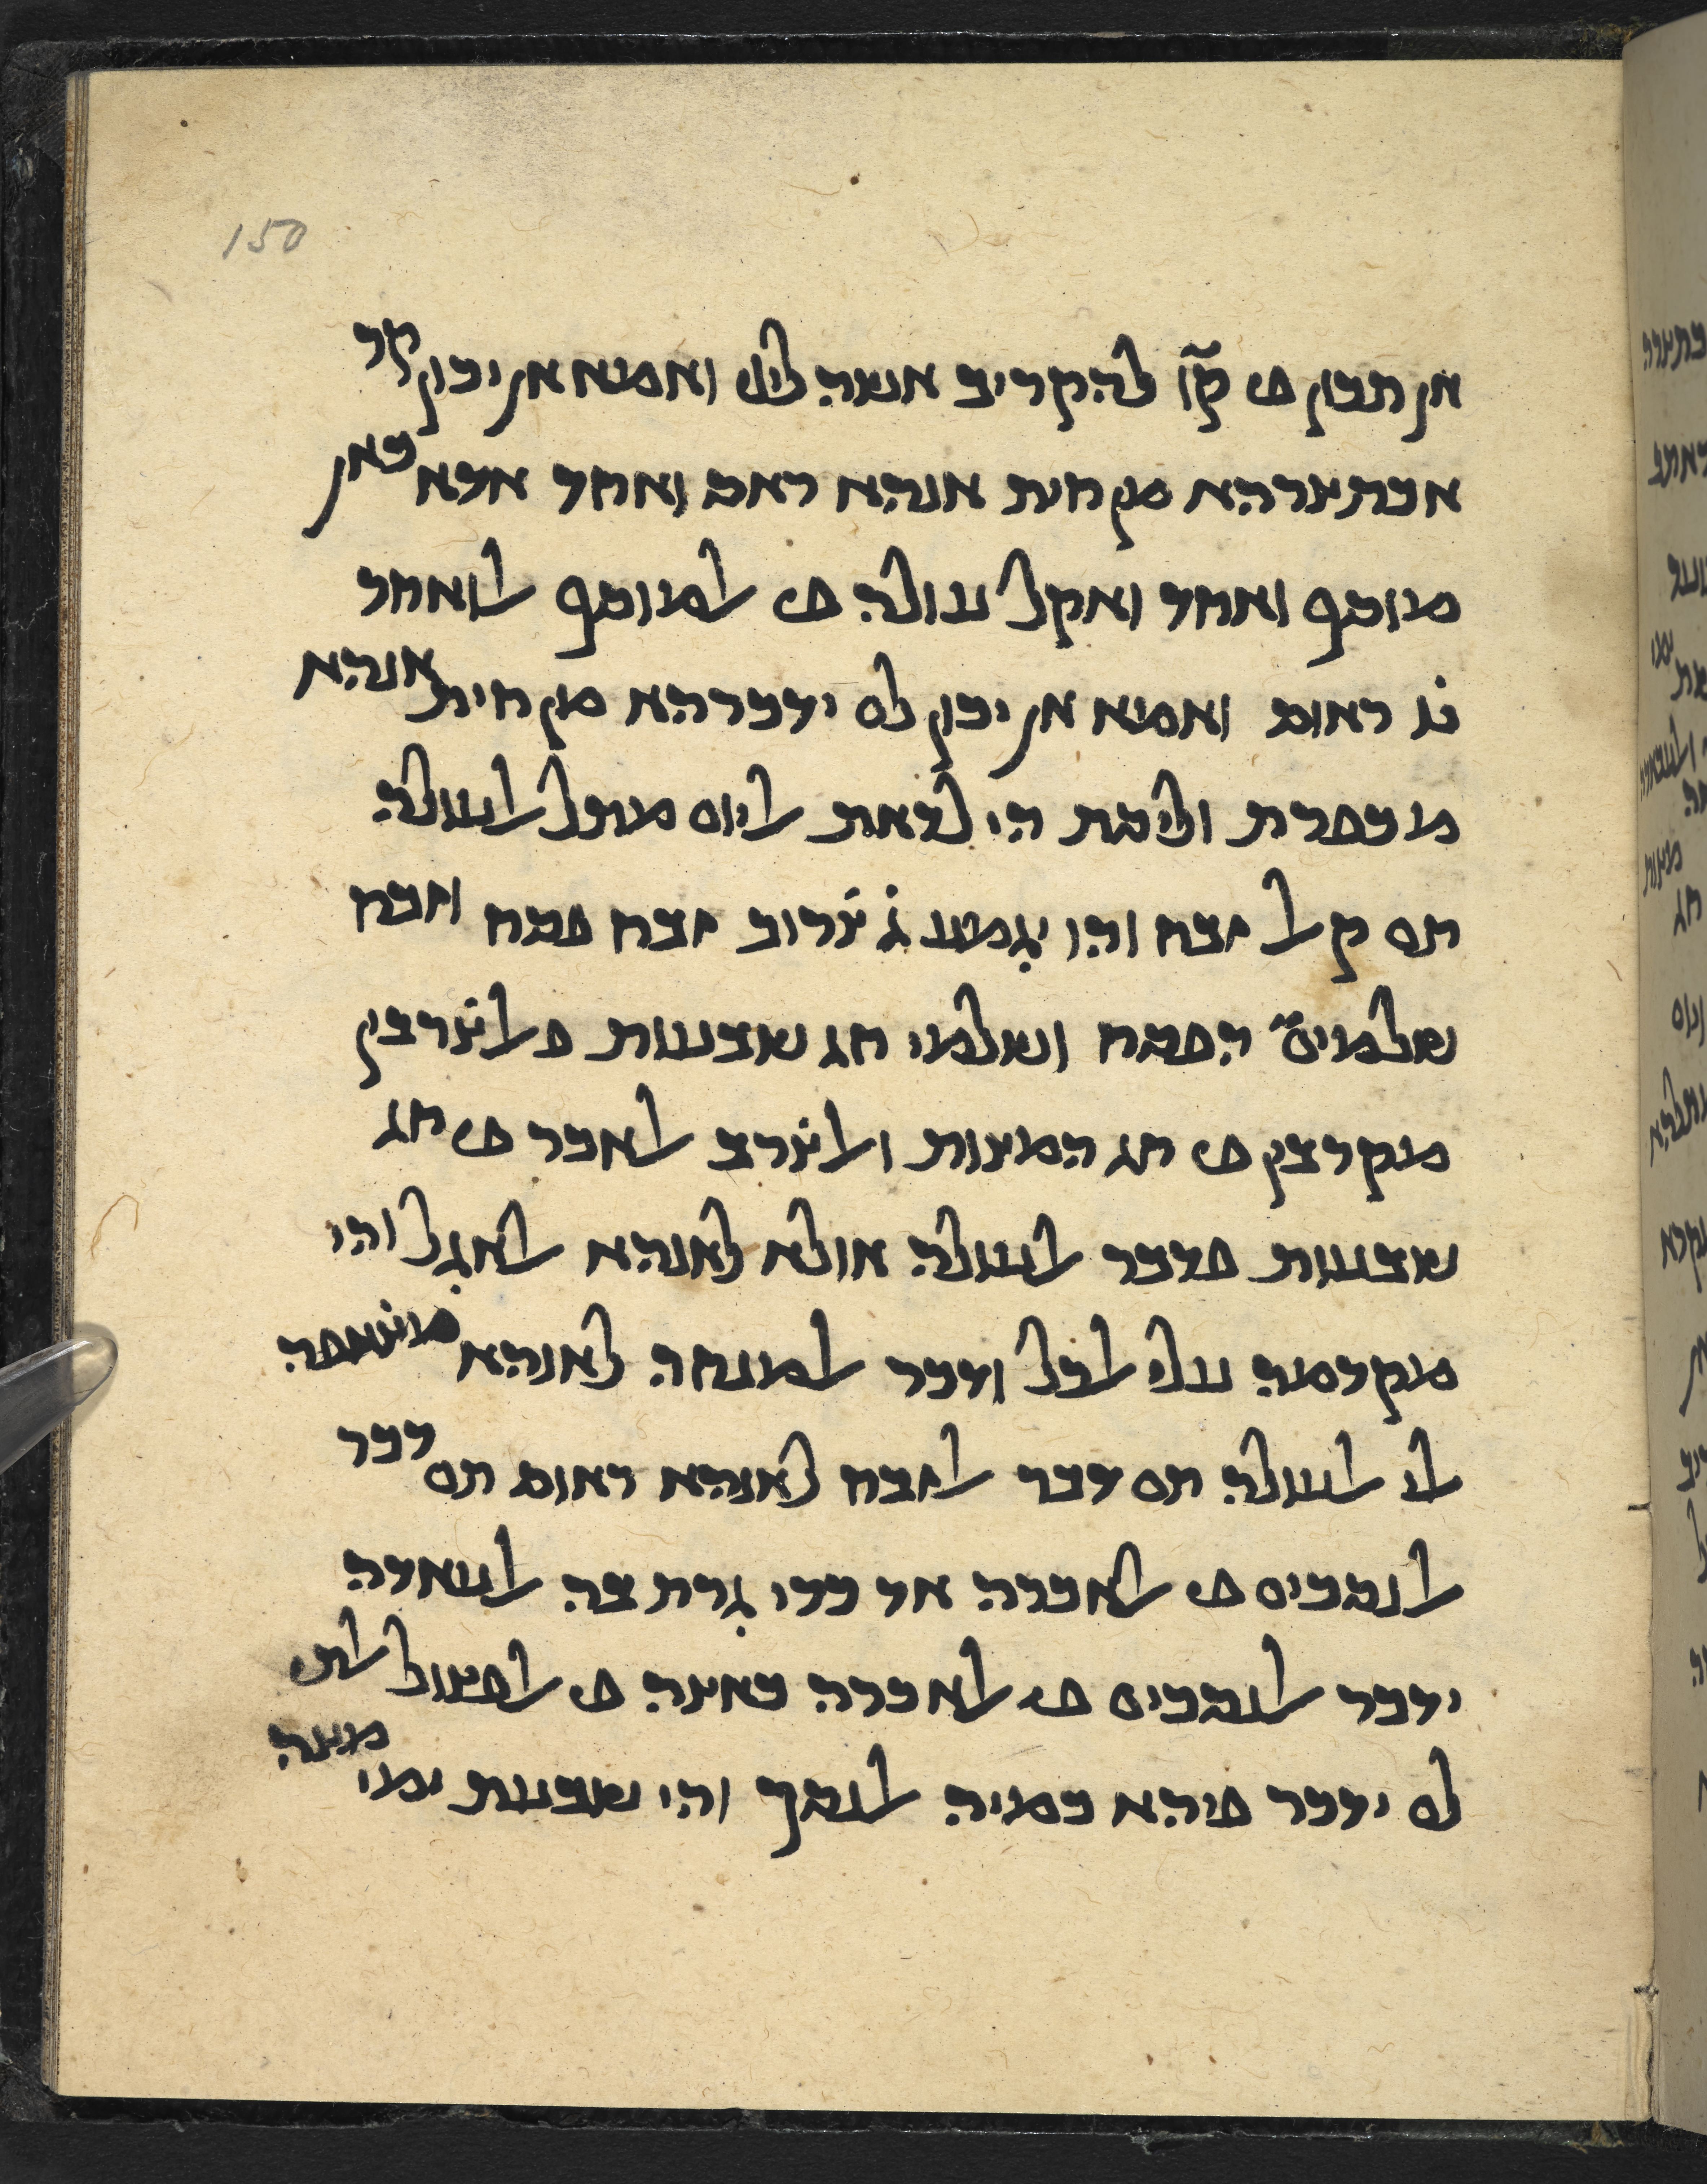 150
אן תכון פי קו̃ להקריב אשה לייי ואמא אן יכון קד
אכתצרהא מן חית אנהא ראס ואחד אדא כאן
מוסף ואחד ואקל עולה פי אלמוסף אלואחד
יׄג ראוס ואמא אן יכון לם ידכרהא מן חית אנהא
מכפרת וליסת הי לדאת אליום מתל אלעולה
תם קאל זבח והו יגׄמע גׄ צׄרוב זבח פסח וזבח
שלמים̃ הפסח ושלמי חג שבעות פאלצׄרבין
מקרבין פי חג המצות ואלצׄרב אלאכר פי חג
שבעות פדכר אלעולה אולא לאנהא אלאגׄל והי
מקדמה עלי אלכל ודכר אלמנחה לאנהא מצׄאפה
אלי אלעולה תם דכר אלזבח לאנהא ראוס תם דכר
אלנסכים פי אלאכרה אד כדי גׄרת בה אלעאדה
ידכר אלנסכים פי אלאכרה כאצה פי אלפצול אלתי
לם ידכר פיהא כמיה אלנסך והי שבעות ימי מצה